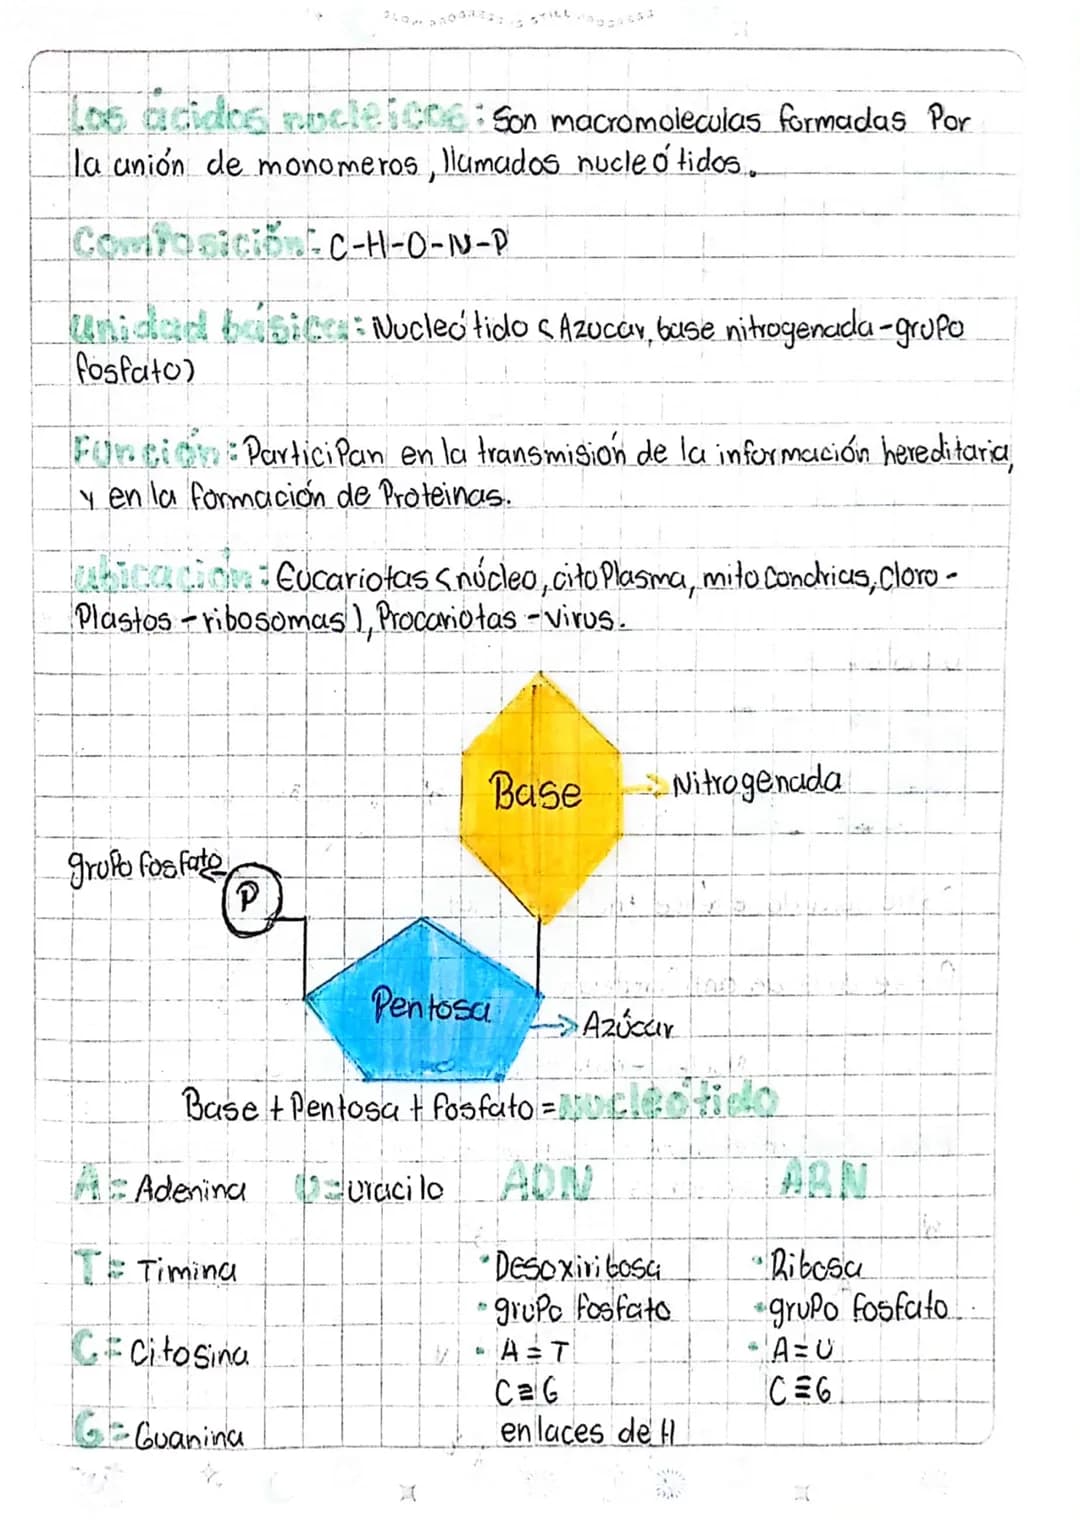 SLOW PROGRESS IS STILL PROGRESS
Los ácidos nucleicos: Son macromoleculas formadas Por
la unión de monomeros, llamados nucleótidos.
Composición: C-H-O-N-P
Unidad básica: Nucleótido (Azucar, base nitrogenada-grupo
fosfato)
Función: ParticiPan en la transmisión de la información hereditaria,
y en la formación de Proteinas.
ubicación: Eucariotas (núcleo, citoPlasma, mitocondrias, Cloro-
Plastos - ribosomas), Procariotas - Virus.
Base
Nitrogenada
gruPo fosfato
P
Pentosa
Azúcar
Base + Pentosa + fosfato = Nucleótido
A = Adenina U = uracilo ADN ARN
T = Timina
• Desoxiribosa • Ribosa
• gruPo fosfato • gruPo fosfato
C = Citosina • A = T • A = U
C ≡ G C ≡ G
G = Guanina enlaces de H